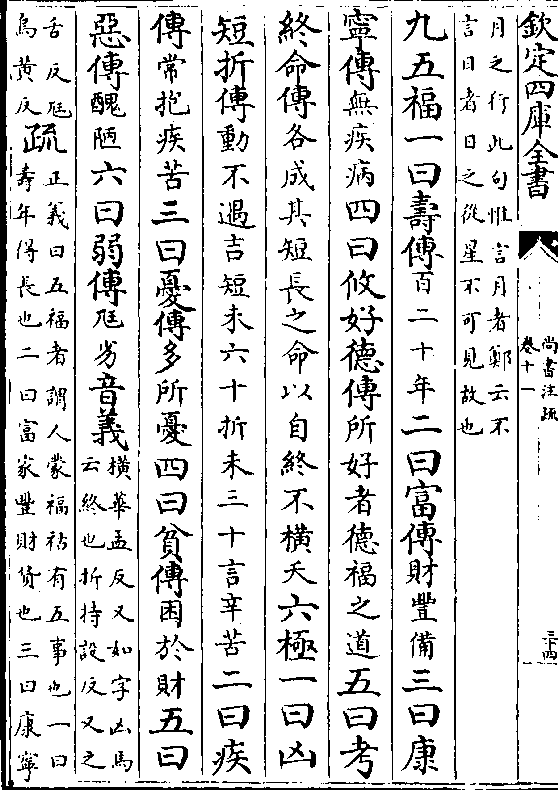 欽定四庫全書
尚書注疏
卷十一
三十四
月之行此句惟言月者鄭云不
言日者日之從星不可見故也
九五福一曰壽傳百二十年二曰富傳財豐備三曰康
寧傳無疾病四曰攸好德傳所好者德福之道五曰考
終命傳各成其短長之命以自終不橫夭六極一曰凶
短折傳動不遇吉短未六十折未三十言辛苦二曰疾
傳常抱疾苦三曰憂傳多所憂四曰貧傳困於財五曰
惡傳醜陋六曰弱傳尫劣音義
橫華孟反又如字凶馬
云終也折持設反又之
舌反尫
烏黄反
疏
正義曰五福者謂人蒙福祐有五事也一曰
壽年得長也二曰富家豐財貨也三曰康寧